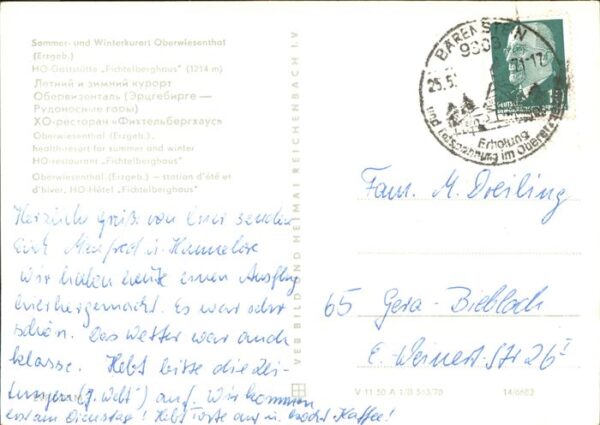 Sommer- und Winterkurort Oberwiesenthal
(Erzgeb.)
HO-Gaststätte „Fichtelberghaus" (1214 m)
Летний и зимний курорт
Обервизенталь (Эрцгебирге —
Рудоносные горы)
ХО-ресторан «Фихтельбергхаус»
Oberwiesenthal (Erzgeb.),
health-resort for summer and winter
HO-restaurant „Fichtelberghaus"
Oberwiesenthal (Erzgeb.) – station d'été et
d'hiver, HO-Hôtel „Fichtelberghaus"
Herzliche Grüße von hier senden
Euch Manfred u. Hannelore
Wir haben heute einen Ausflug
hierhergemacht. Es war sehr
schön. Das Wetter war auch
klasse. Hebt bitte die Zei-
tungen (J. Welt) auf. Wir kommen
erst am Dienstag! Hebt Torte auf u. kocht Kaffee!
VEB BILD UND HEIMAT REICHENBACH I.V
BÄRENSTEIN
9303
25.5.
-17
Erholung
und Entspannung im Oberen
Fam. M. Dreiling
65 Gera-Bieblach
E.-Weinert-Str 26 I
V 11 50 A 1/B 513/70 14/6602